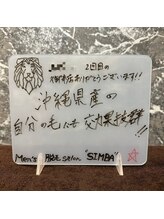 2回目の
御来店ありがとうございます!!
沖縄県産の
自分の毛にも効果抜群
Men's 脱毛 salon "SIMBA"